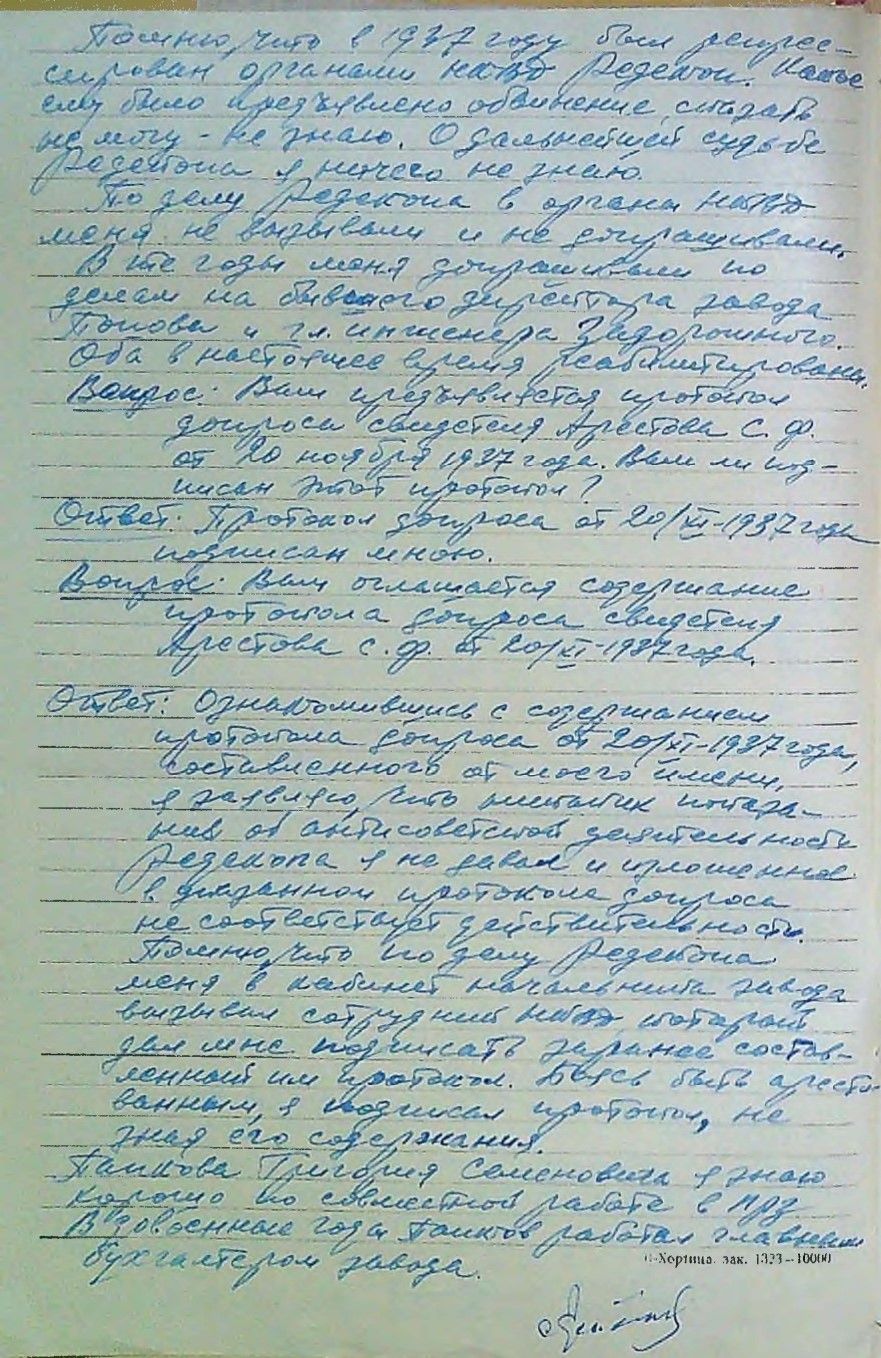 Помню, что в 1937 году был репрес-
сирован органами НКВД Редекоп. Какое
ему было предъявлено обвинение, сказать
не могу - не знаю. О дальнейшей судьбе
Редекопа я ничего не знаю.
По делу Редекопа в органы НКВД
меня не вызывали и не допрашивали.
В те годы меня допрашивали по
делам на бывшего директора завода
Попова и гл. инженера Задорожного.
Оба в настоящее время реабилитированы.
Вопрос: Вам предъявляется протокол
допроса свидетеля Арестова С. Ф.
от 20 ноября 1937 года. Вами ли под-
писан этот протокол?
Ответ: Протокол допроса от 20/XI-1937 года
подписан мною.
Вопрос: Вам оглашается содержание
протокола допроса свидетеля
Арестова С. Ф. от 20/XI-1937 года.
Ответ: Ознакомившись с содержанием
протокола допроса от 20/XI-1937 года,
составленного от моего имени,
я заявляю, что никаких показа-
ний об антисоветской деятельности
Редекопа я не давал и изложенное
в указанном протоколе допроса
не соответствует действительности.
Помню, что по делу Редекопа
меня в кабинет начальника завода
вызывал сотрудник НКВД, который
дал мне подписать заранее состав-
ленный им протокол. Боясь быть аресто-
ванным, я подписал протокол, не
зная его содержания.
Панкова Григория Семеновича я знаю
хорошо по совместной работе в ПРЗ
В довоенные годы Панков работал главным
бухгалтером завода.
Хортица. зак. 1323-10000